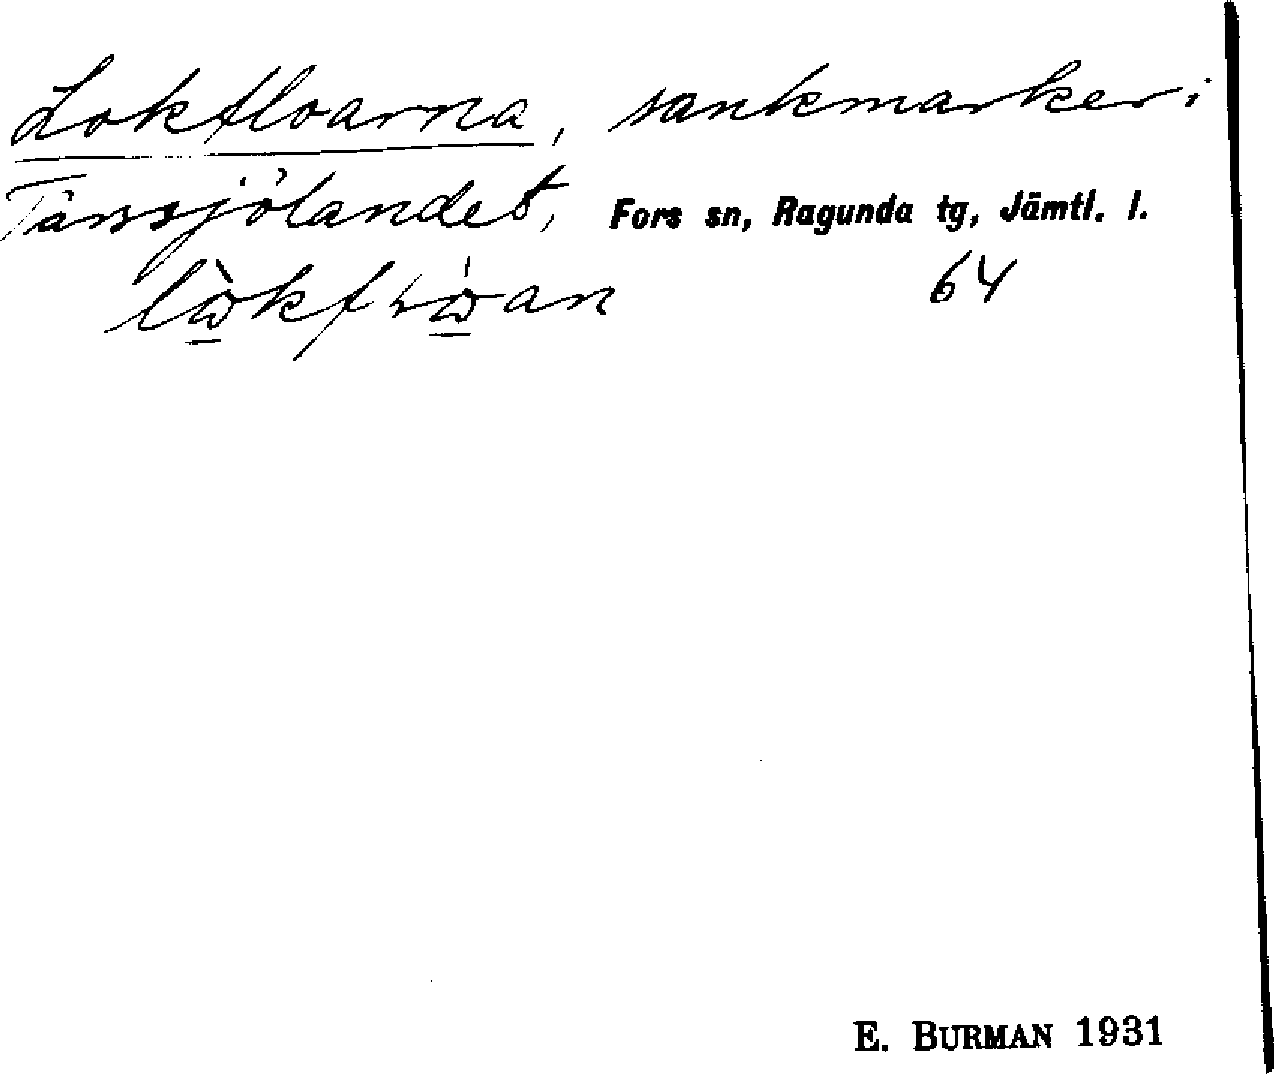 Lokfloarna, sankmarker i
Tånsjölandet, Fors sn, Ragunda tg, Jämtl. l.
64
E. BURMAN 1931